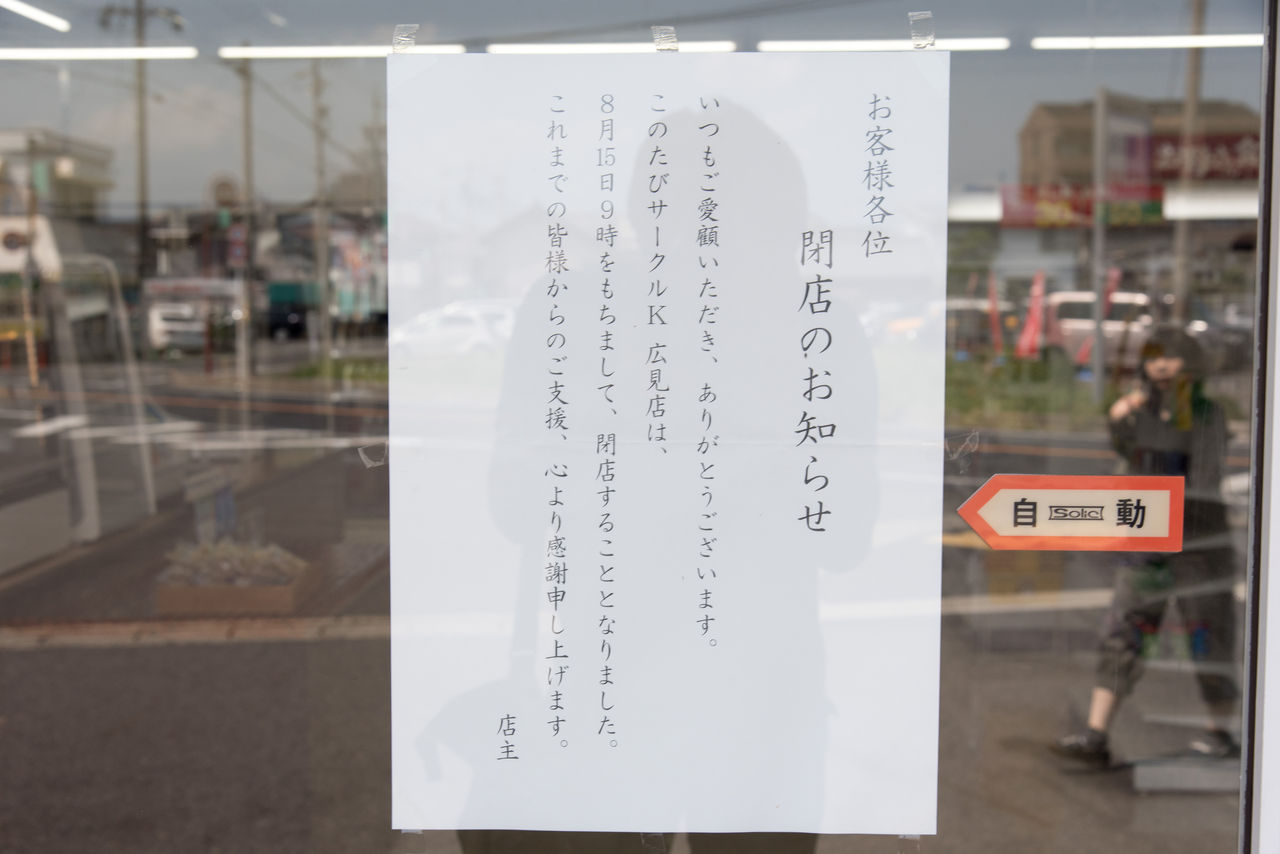 お客様各位
閉店のお知らせ
いつもご愛顧いただき、ありがとうございます。
このたびサークルK 広見店は、
8月15日9時をもちまして、閉店することとなりました。
これまでの皆様からのご支援、心より感謝申し上げます。
店主
自 Solic 動